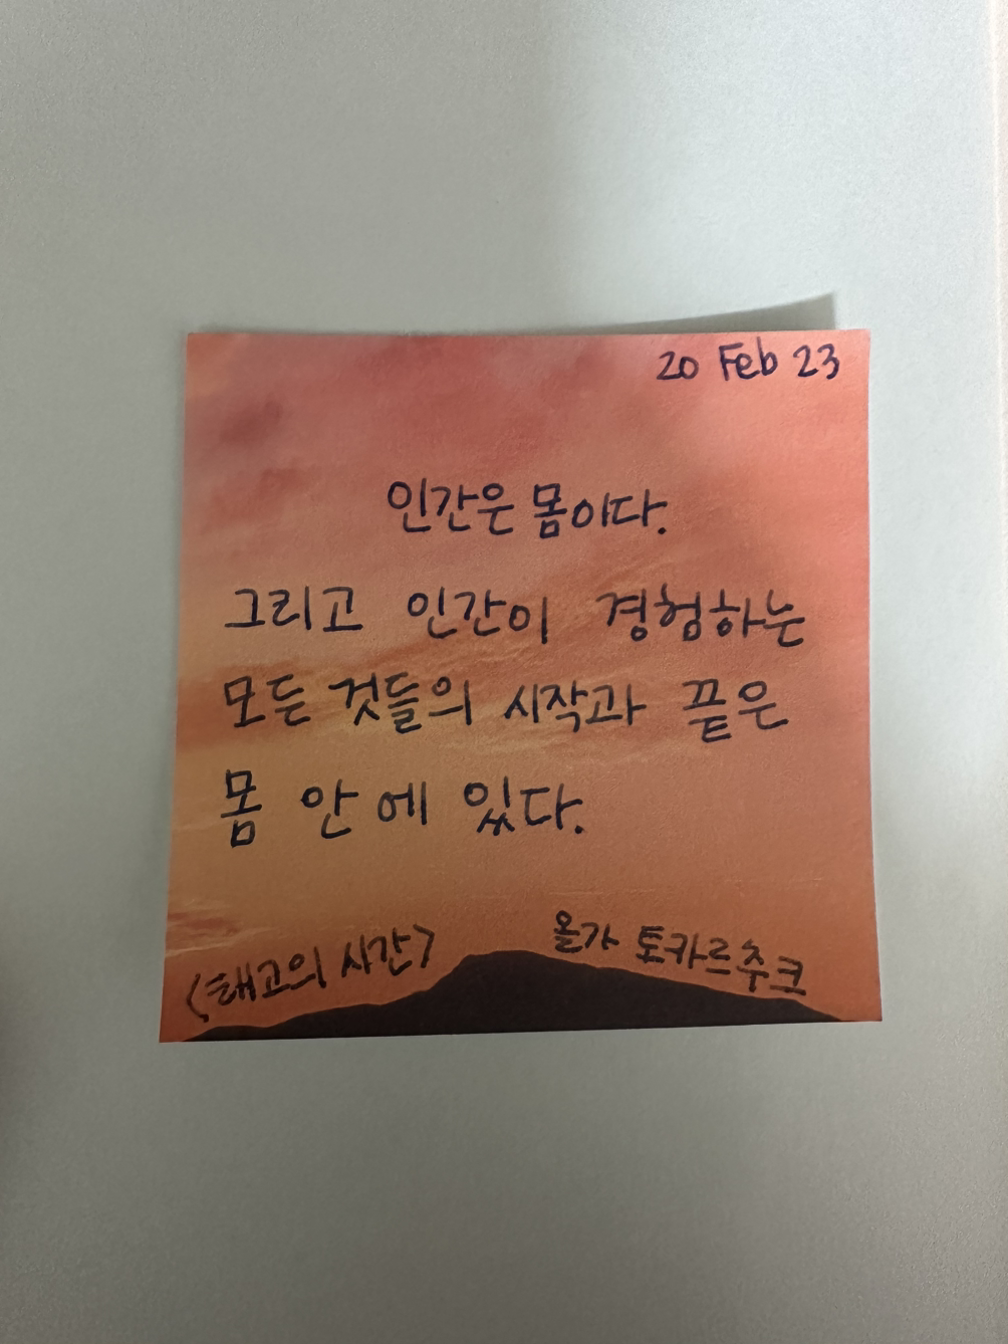 20 Feb 23
인간은 몸이다.
그리고 인간이 경험하는
모든 것들의 시작과 끝은
몸 안에 있다.
<태고의 시간> 올가 토카르추크